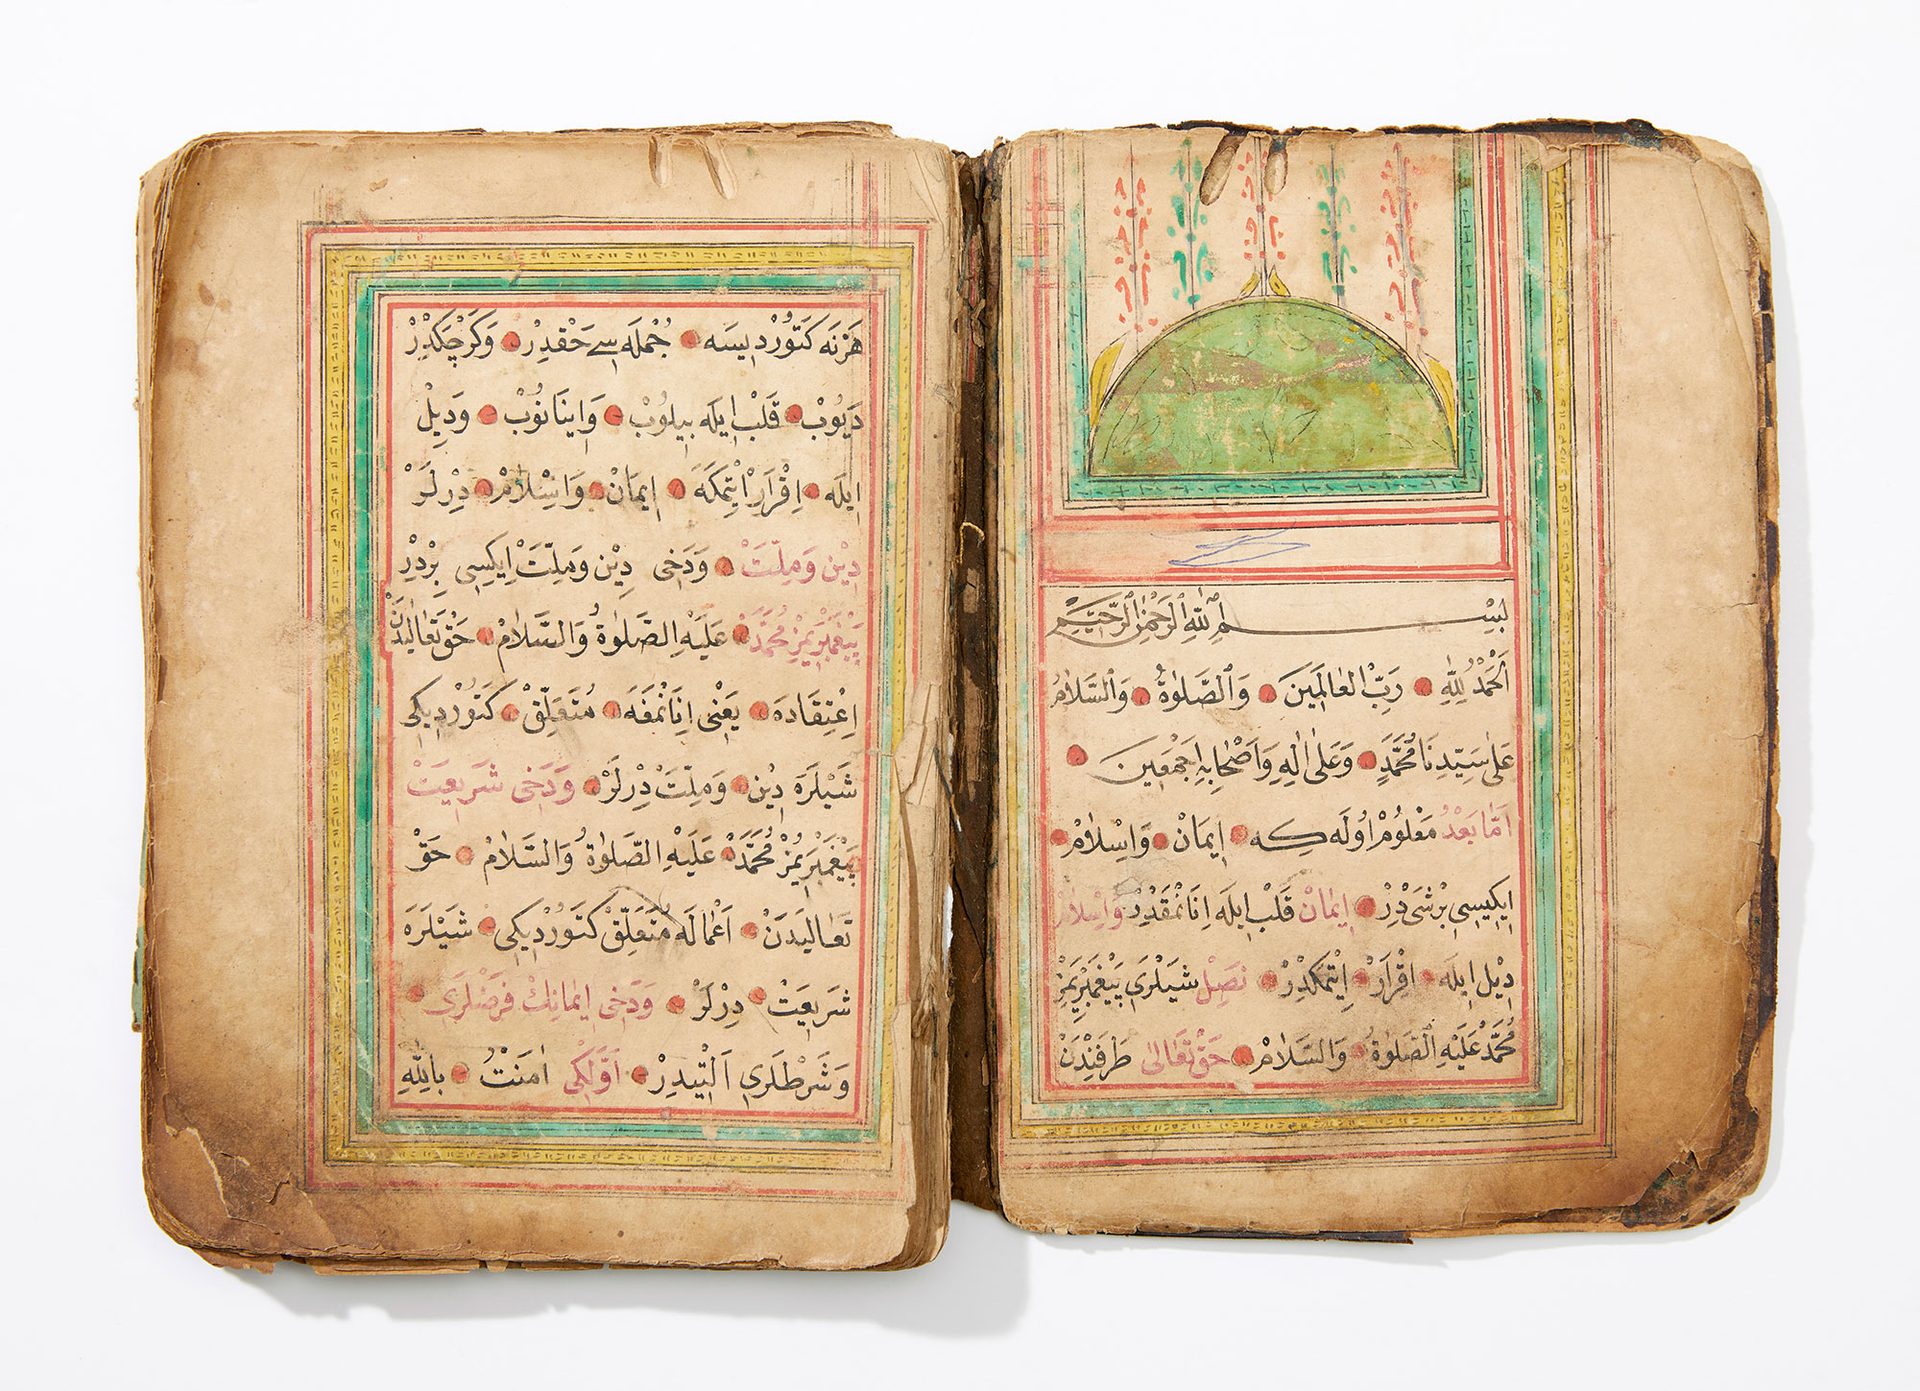 بِسْمِ اللّٰهِ الرَّحْمٰنِ الرَّحِيْمِ
اَلْحَمْدُ لِلّٰهِ رَبِّ الْعَالَمِينَ وَالصَّلٰوةُ وَالسَّلَامُ
عَلٰى سَيِّدِنَا مُحَمَّدٍ وَعَلٰى اٰلِهِ وَاَصْحَابِهِ اَجْمَعِينَ
اَمَّا بَعْدُ مَعْلُومْ اُولَه كِه اِيمَانْ وَاِسْلَامْ
اِيكِيسِى بِرْشَىْ دِرْ اِيمَانْ قَلْبْ اِيلَه اِنَانْمَقْدِرْ وَاِسْلَامْ
دِيلْ اِيلَه اِقْرَارْ اِيتْمَكْدِرْ نَصِلْ شَيْلَرِى پَيْغَمْبَرِيمِزْ
مُحَمَّدْ عَلَيْهِ الصَّلٰوةُ وَالسَّلَامْ حَقْ تَعَالٰى طَرَفِنْدَنْ
هَرْنَه كَتُورْدِيسَه جُمْلَه سِى حَقْدِرْ وَكَرْچَكْدِرْ
دَيُوبْ قَلْبْ اِيلَه بِيلُوبْ وَاِينَانُوبْ وَدِيلْ
اِيلَه اِقْرَارْ اِيتْمِكَه اِيمَانْ وَاِسْلَامْ دِرْلَرْ
دِينْ وَمِلَّتْ وَدَخِى دِينْ وَمِلَّتْ اِيكِسِى بِرْدِرْ
پَيْغَمْبَرِيمِزْ مُحَمَّدْ عَلَيْهِ الصَّلٰوةُ وَالسَّلَامْ حَقْ تَعَالٰيدَنْ
اِعْتِقَادَه يَعْنِى اِنَانْمَغَه مُتَعَلِّقْ كَتُورْدِيكِى
شَيْلَرَه دِينْ وَمِلَّتْ دِرْلَرْ وَدَخِى شَرِيعَتْ
پَيْغَمْبَرِيمُزْ مُحَمَّدْ عَلَيْهِ الصَّلٰوةُ وَالسَّلَامْ حَقْ
تَعَالَيدَنْ اَعْمَالَه مُتَعَلِّقْ كَتُورْدِيكِى شَيْلَرَه
شَرِيعَتْ دِرْلَرْ وَدَخِى اِيمَانِكْ فَرْضْلَرِى
وَشَرْطْلَرِى اَلْتِيدِرْ اَوَّلْكِى اٰمَنْتُ بِاللّٰهِ